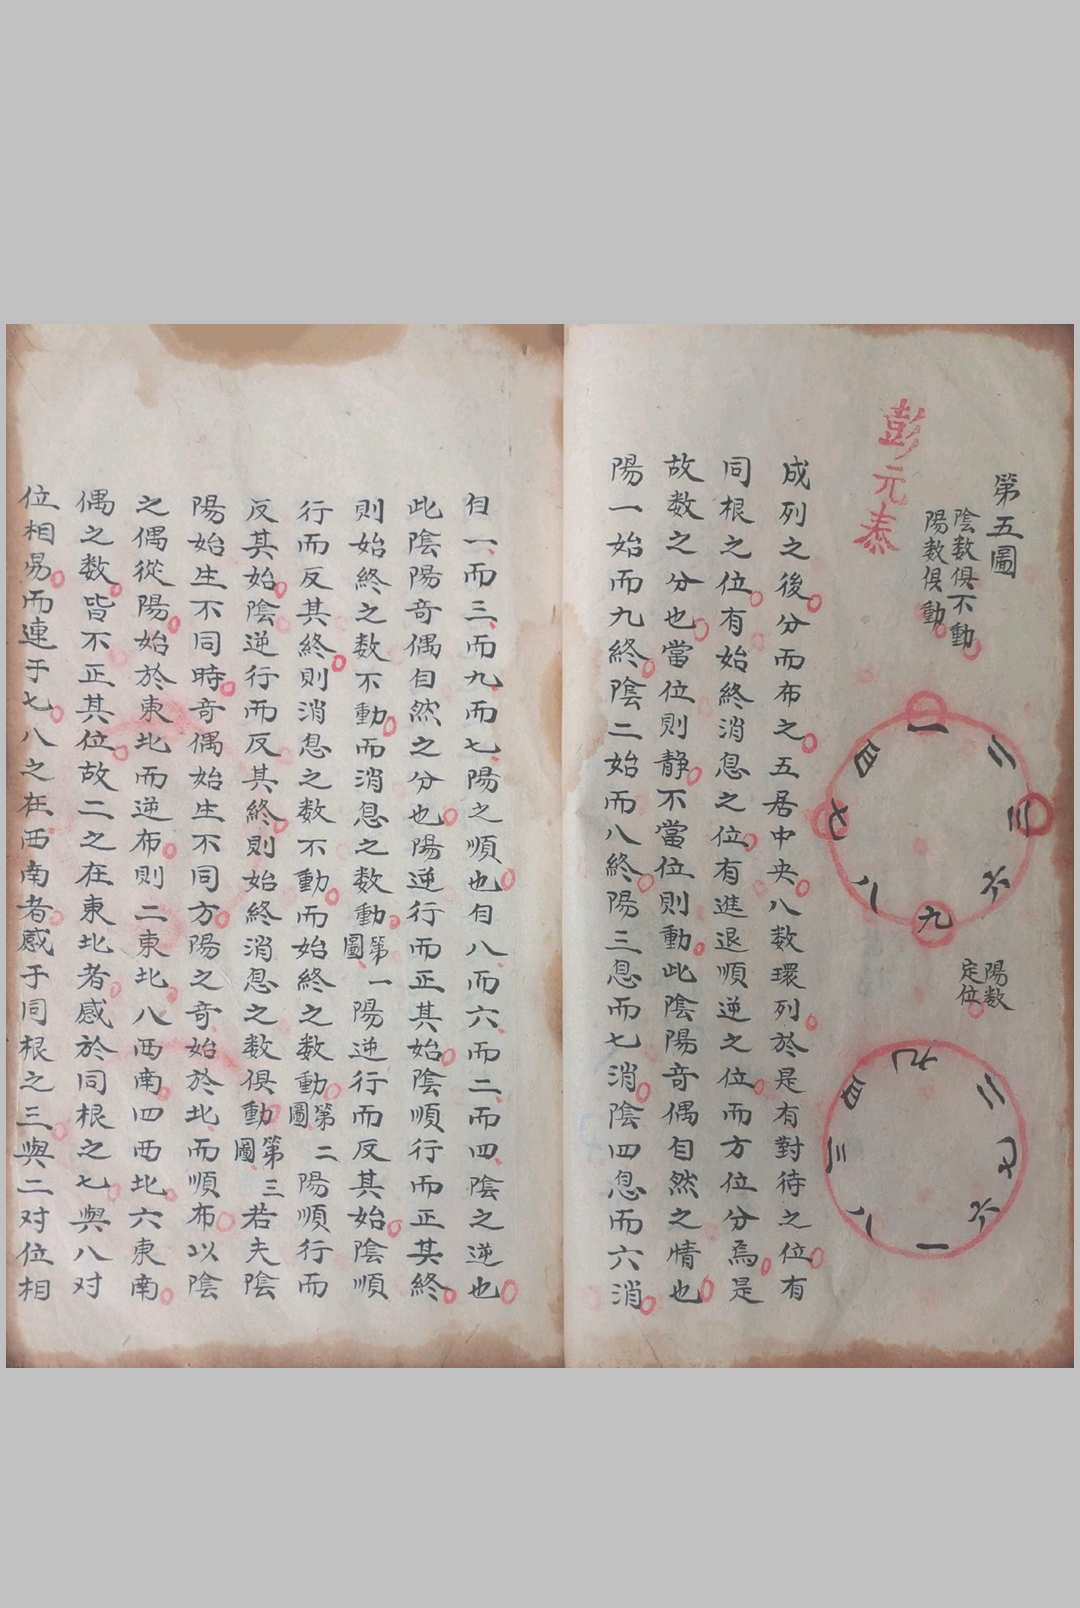 第五圖
陰数俱不動
陽数俱動
彭元泰
一
二
三
六
九
八
七
四
陽数
定位
九
二
七
六
一
八
三
四
成列之後分而布之五居中央八数環列於是有對待之位有
同根之位有始終消息之位有進退順逆之位而方位分焉是
故数之分也當位則静不當位則動此陰陽奇偶自然之情也
陽一始而九終陰二始而八終陽三息而七消陰四息而六消
自一而三而九而七陽之順也自八而六而二而四陰之逆也
此陰陽奇偶自然之分也陽逆行而正其始陰順行而正其終
則始終之数不動而消息之数動第一圖陽逆行而反其始陰順
行而反其終則消息之数不動而始終之数動第二圖陽順行而
反其始陰逆行而反其終則始終消息之数俱動第三圖若夫陰
陽始生不同時奇偶始生不同方陽之奇始於北而順布以陰
之偶從陽始於東北而逆布則二東北八西南四西北六東南
偶之数皆不正其位故二之在東北者感於同根之七與八对
位相易而連于七八之在西南者感于同根之三與二对位相